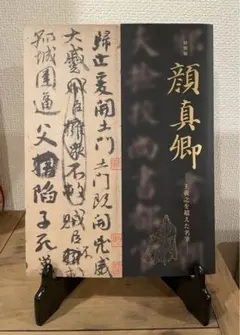 特別展
顔真卿
王羲之を超えた名筆
歸止爰開土門土門既開凶威
大蹙賊臣擁衆不救
城圍逼父擒陷子死